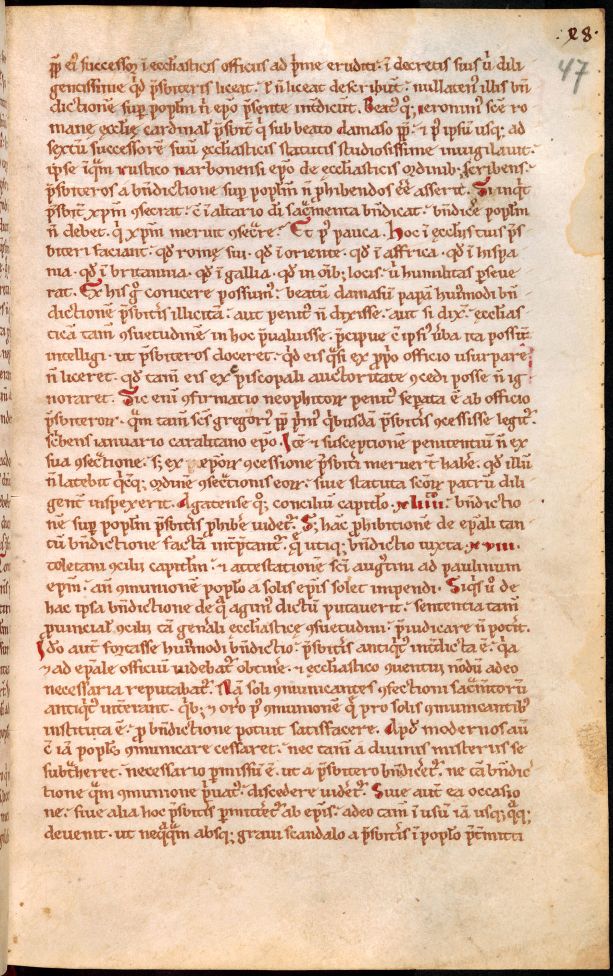 .28.
47
p̄p̄ ei᷒ successor̄ i ęccl̄iasticis officiis ad p̄me eruditi ⁊ i decretis suis ū dili
gentissime q̄d p̄sbiteris liceat · ł n̄ liceat describunt̄ · nullaten᷒ illis bn̄
dictionē sup̄ popl̄m n̄ ep̄o p̄sente int̄dicunt. Beat᷒ q; ieronim᷒ scē ro
manę ęccl̄ię cardinał p̄sbit̄ q̄ sub beato damaso p̄p̄ · ⁊ p᷒ ip̄sum usq; ad
sextū successorē suū ęccl̄iasticis statutis studiosissime inuigilauit ·
ip̄se i q̄m rustico narbonensi ep̄o de ęccl̄iasticis ordinib; scribens ·
p̄sbiteros a bn̄dictione sup̄ popl̄m n̄ p̄hibendos ēē asserit. Si inq̄t
p̄sbit̄ xp̄m ɔsecrat · ē i altario dī sac̄menta bn̄dicat · bn̄dicē popl̄m
n̄ debet · q̄ xp̄m meruit ɔsec̄re · Et p᷒ pauca. Hoc i ęccl̄iis tuis p̄s
biteri faciant · qd̄ romę siū · qd̄ i oriente · qd̄ i affrica · qd̄ i hispa
nia · qd̄ i britannia · qd̄ i gallia · qd̄ in om̄ib; locis · ū humilitas p̄seue
rat. Ex his g̊ conicere possum᷒ · beatū damasū papā hui᷒modi bn̄
dictionē p̄sbit̄is illicitā · aut penit᷒ n̄ dixisse · aut si dix̄ · ęccl̄ias
ticā tam̄ ɔsuetudinē in hoc p̄ualuisse · p̄cipue c̄ ip̄si᷒ ūba ita possint
intelligi · ut p̄sbiteros doceret · q̄d eis q̄si ex p̄p̄o officio usurparē
n̄ liceret · qd̄ tam̄ eis ex episcopali auctoritate ɔcedi posse n̄ ig
noraret. Sic enī ɔfirmatio neophitor̄ penit᷒ sep̄ata ē ab officio
p̄sbiteror̄ · q̄m tam̄ scs̄ gregori᷒ p̄p̄ p̄m᷒ q̄busdā p̄sbit̄is ɔcessisse legit᷒
sc̄bens ianuario caralitano ep̄o. Itē ⁊ susceptionē penitentiū n̄ ex
sua ɔsec̄tione · s; ex ep̄or̄ ɔcessione p̄sbit̄i meruer̄t habē · qd̄ illū
n̄ latebit q̄cq; ordinē ɔsec̄tionis eor̄ · siue statuta scōr̄ patrū dili
gent̄ inspexerit. Agatense q̊; concilium capitl̄o · xliiii · bn̄dictio
nē sup̄ popl̄m p̄sbit̄is p̄hibē uidet᷒. S; hac p̄hibitionē de ep̄ali tan
tū bn̄dictione factā int̄p̄tant᷒ · q̄ utiq; bn̄dictio iuxta · xviii ·
toletani ɔcilii capitl̄m · ⁊ attestationē sc̄i augn̄i ad paulinum
ep̄m · an̄ ɔmunionē popl̄o a solis ep̄is solet impendi. Siq̄s ū de
hac ip̄sa bn̄dictione de q̄ agim᷒ dictū putauerit · sentencia tam̄
p̄uincial᷒ ɔcilii tā gen̄ali ęccl̄iasticę ɔsuetudini · p̄iudicare n̄ pot̄it.
Ido aut̄ forcasse hui᷒modi bn̄dictio · p̄sbit̄is antiq̄t᷒ int̄dicta ē · q̄a
⁊ ad ep̄ale officiū uidebat᷒ obtinē · ⁊ ęccl̄iastico ɔuentui nōdū adeo
necessaria reputabat᷒. Nā soli ɔmunicantes ɔfectioni sac̄m̄torū
antiq̄t᷒ int̄erant · q̄b; ⁊ or̄o p᷒ ɔmunionē q̄ pro solis ɔmunicantib᷒
instituta ē · p̄ bn̄dictione potuit satisfacere. Apd̄ modernos aū
c̄ iā popl̄s ɔmunicare cessaret · nec tam̄ a diuinis misteriis se
subt̄heret · necessario p̄missū ē · ut a p̄sbitero bn̄dicēt᷒ · ne tā bn̄dic
tione q̄m ɔmunione p̄uat᷒ · discedere uidēt᷒. Siue aut̄ ea occasio
ne · siue alia hoc p̄sbit̄is p̄mittēt᷒ ab ep̄is · adeo tam̄ i usū iā usq; q̄q;
deuenit · ut neq̄q̄m absq; graui scandalo a p̄sbit̄is i popl̄o p̄t̄mitti